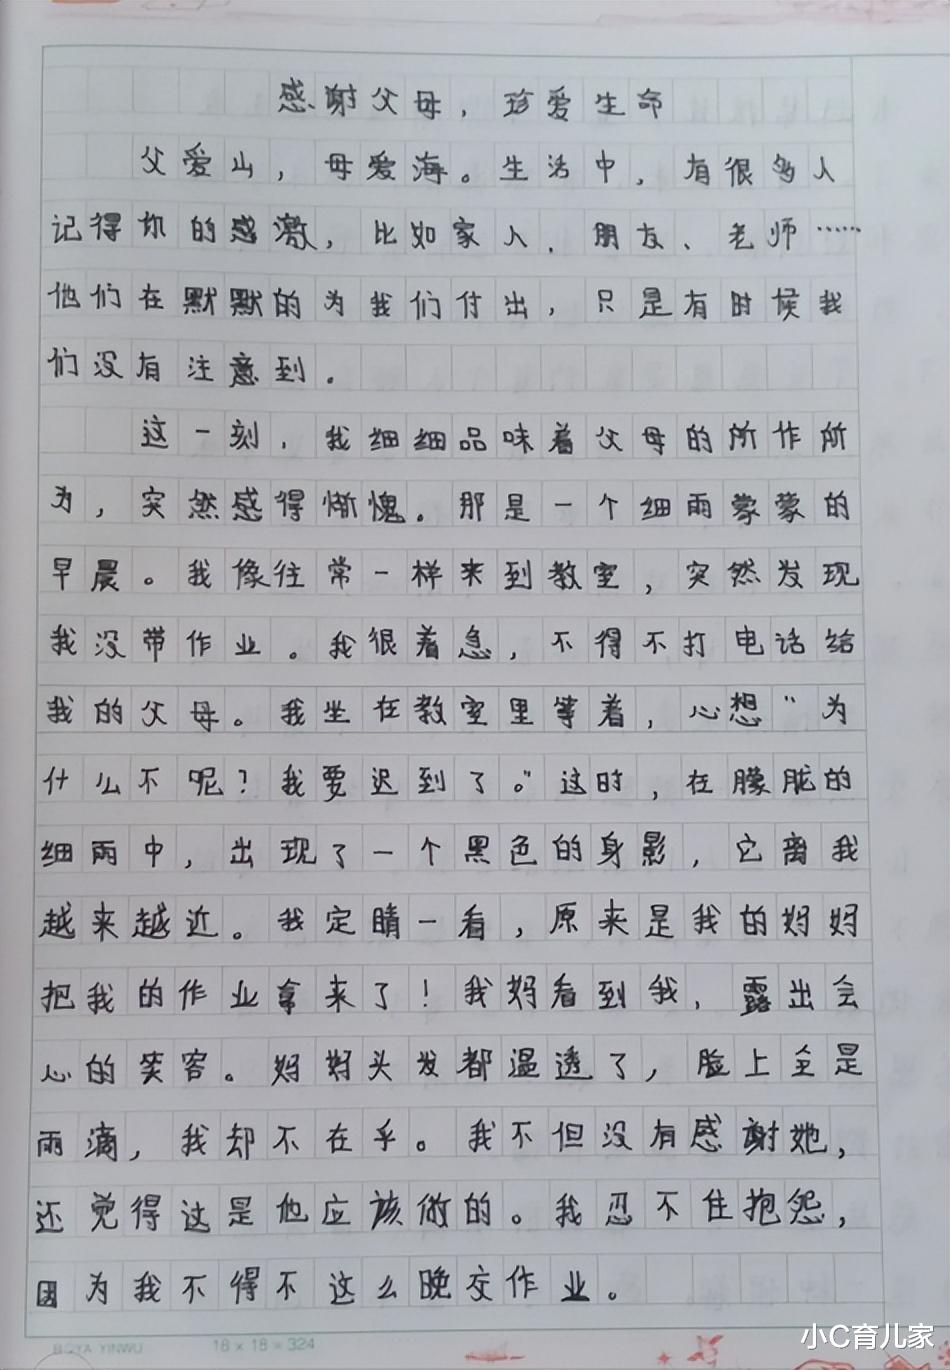 感谢父母，珍爱生命
父爱山，母爱海。生活中，有很多人
记得你的感激，比如家人、朋友、老师……
他们在默默的为我们付出，只是有时候我
们没有注意到。
这一刻，我细细品味着父母的所作所
为，突然感得惭愧。那是一个细雨蒙蒙的
早晨。我像往常一样来到教室，突然发现
我没带作业。我很着急，不得不打电话给
我的父母。我坐在教室里等着，心想“为
什么不呢？我要迟到了。”这时，在朦胧的
细雨中，出现了一个黑色的身影，它离我
越来越近。我定睛一看，原来是我的妈妈
把我的作业拿来了！我妈看到我，露出会
心的笑容。妈妈头发都温透了，脸上全是
雨滴，我却不在乎。我不但没有感谢她，
还觉得这是他应该做的。我忍不住抱怨，
因为我不得不这么晚交作业。
BOYA YINWU 18×18=324
小C育儿家